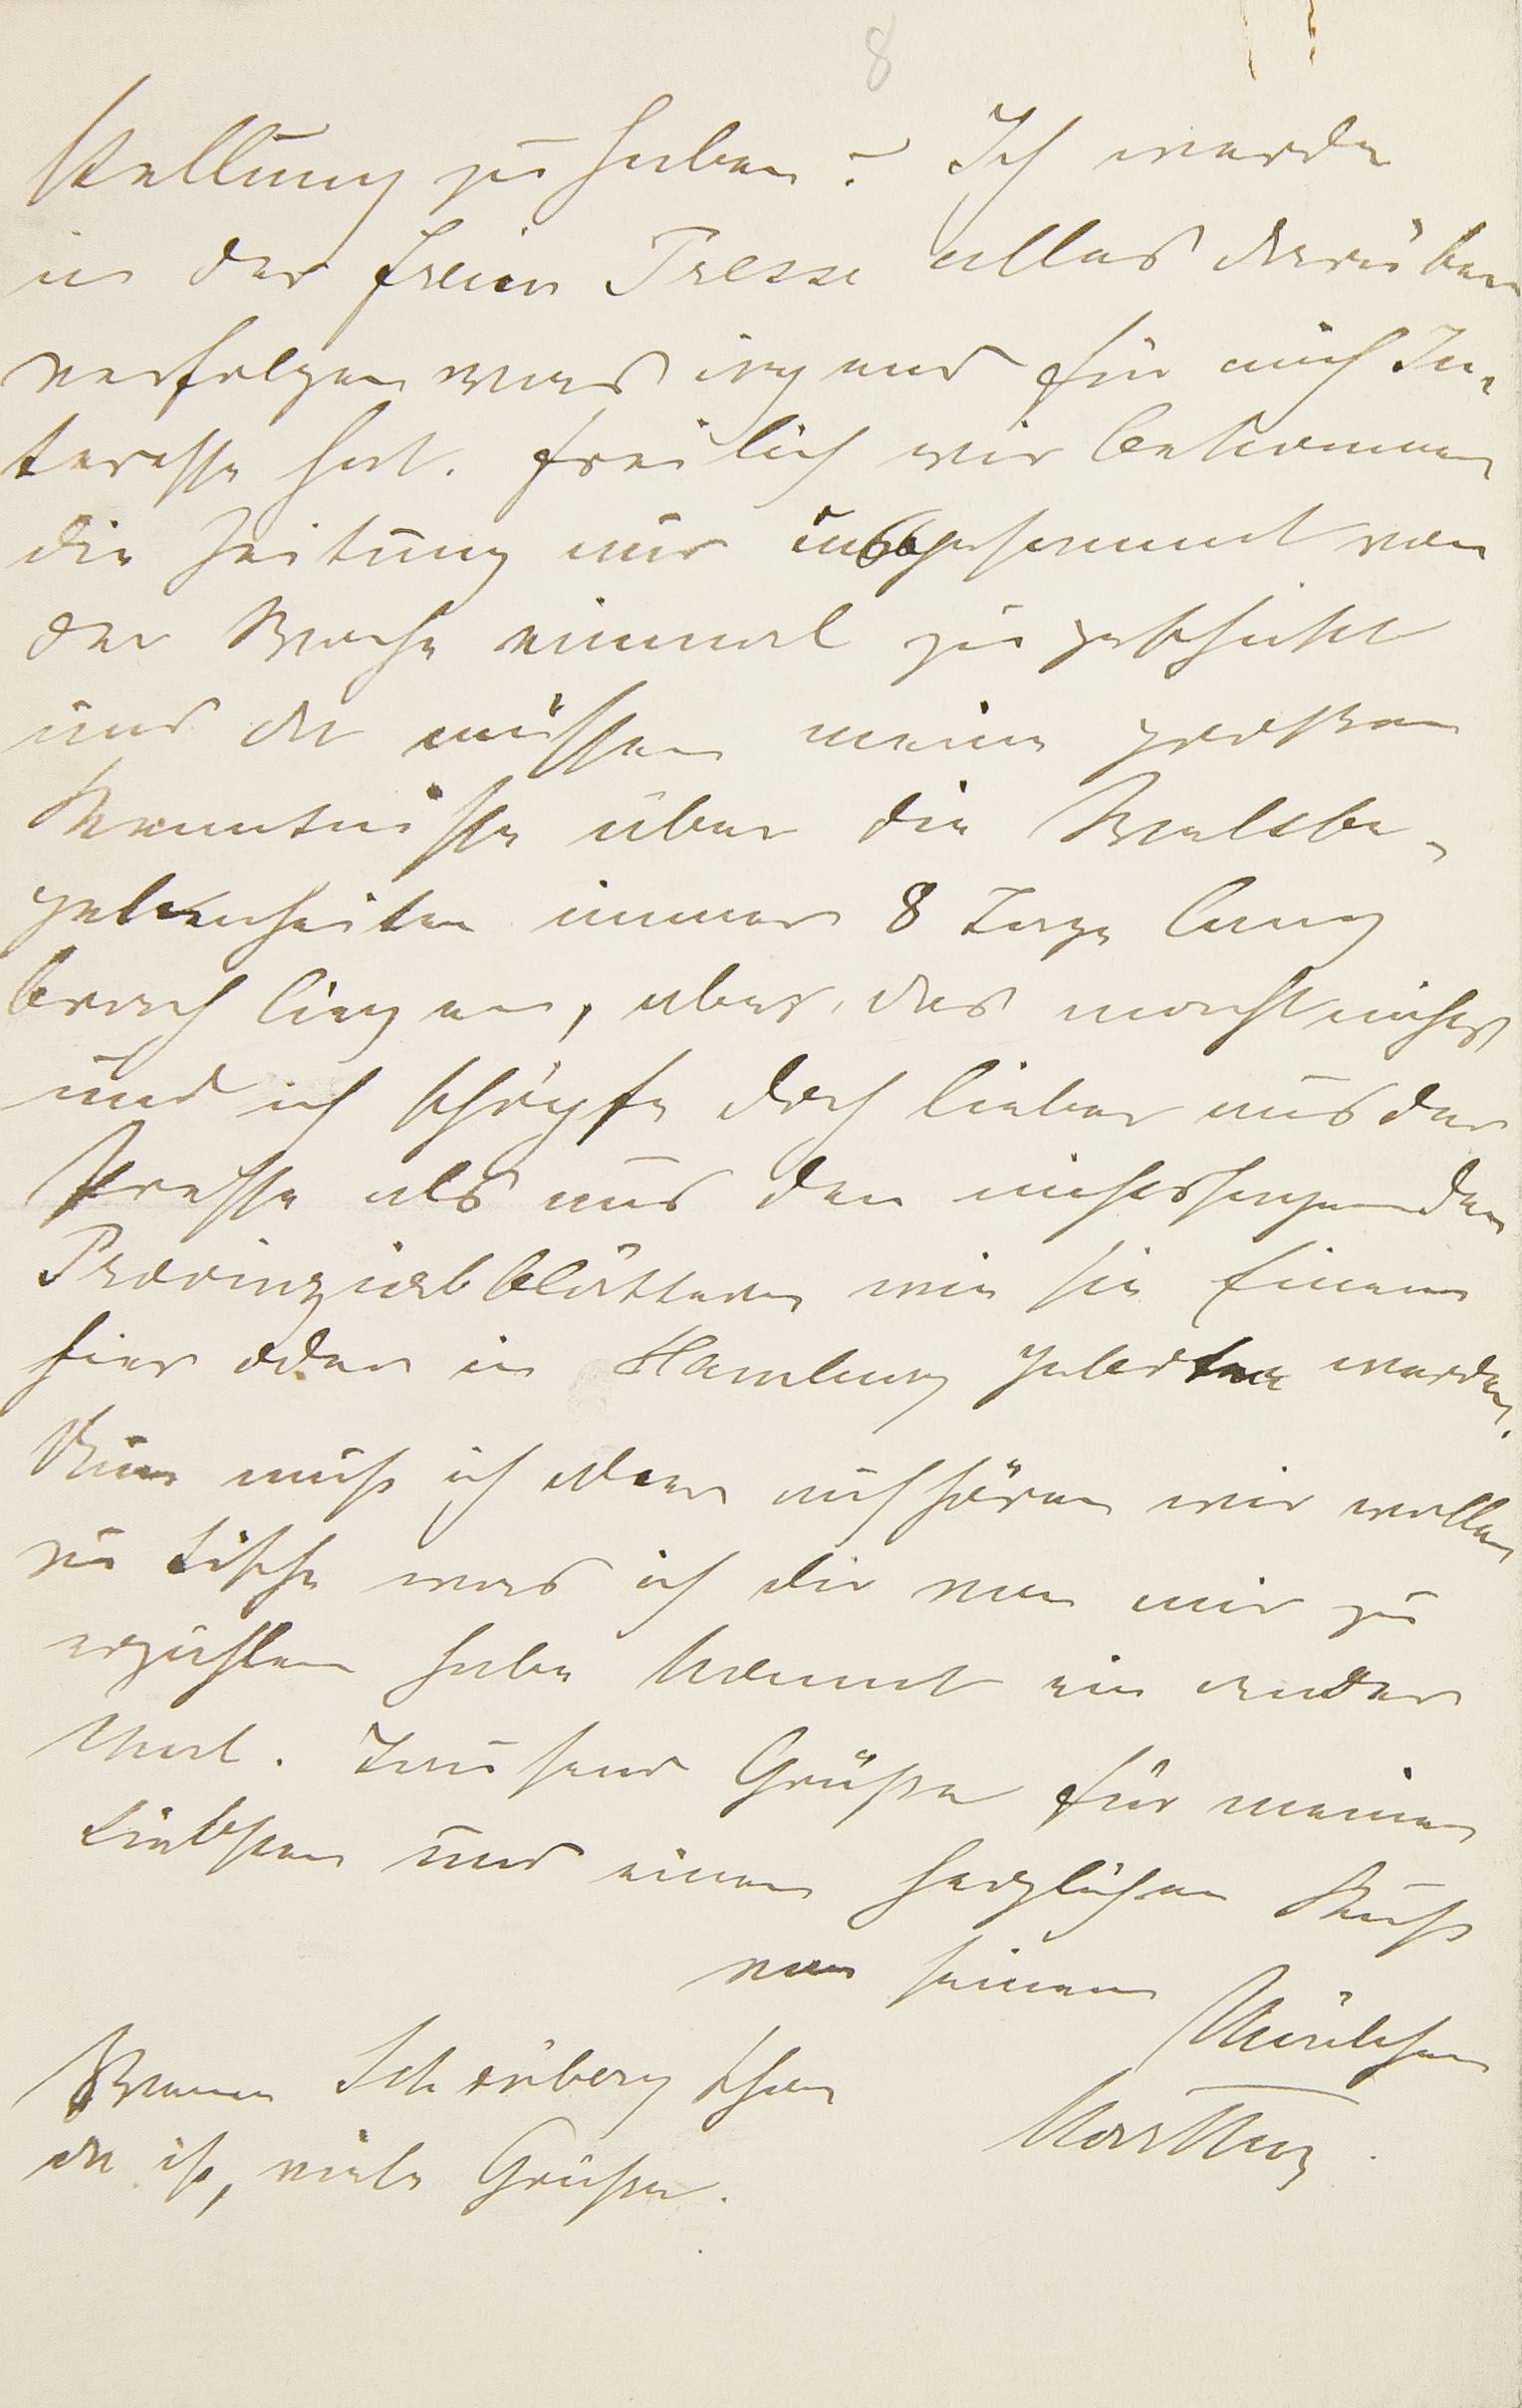 8
stellung zu haben? Ich werde
in der freien Presse alles darüber
verfolgen was irgend für mich In-
teresse hat. freilich wir bekommen
die Zeitung nur insgesammt von
der Woche einmal zu geschickt
und da müssen meine großen
Kenntnisse über die Weltbe-
gebenheiten immer 8 Tage lang
brach liegen, aber das macht nichts
und ich schöpfe doch lieber aus der
Presse als aus den nichtssagenden
Provinzialblättern wie sie Einem
hier oder in Hamburg geboten werden.
Nun muß ich aber aufhören wir wollen
zu Tische was ich dir von mir zu
erzählen habe kommt ein ander
Mal. Tausend Grüße für meinen
Liebsten und einen herzlichen Kuß
von seinem
Martha.
Wenn Schönberg schon
da ist, viele Grüße.